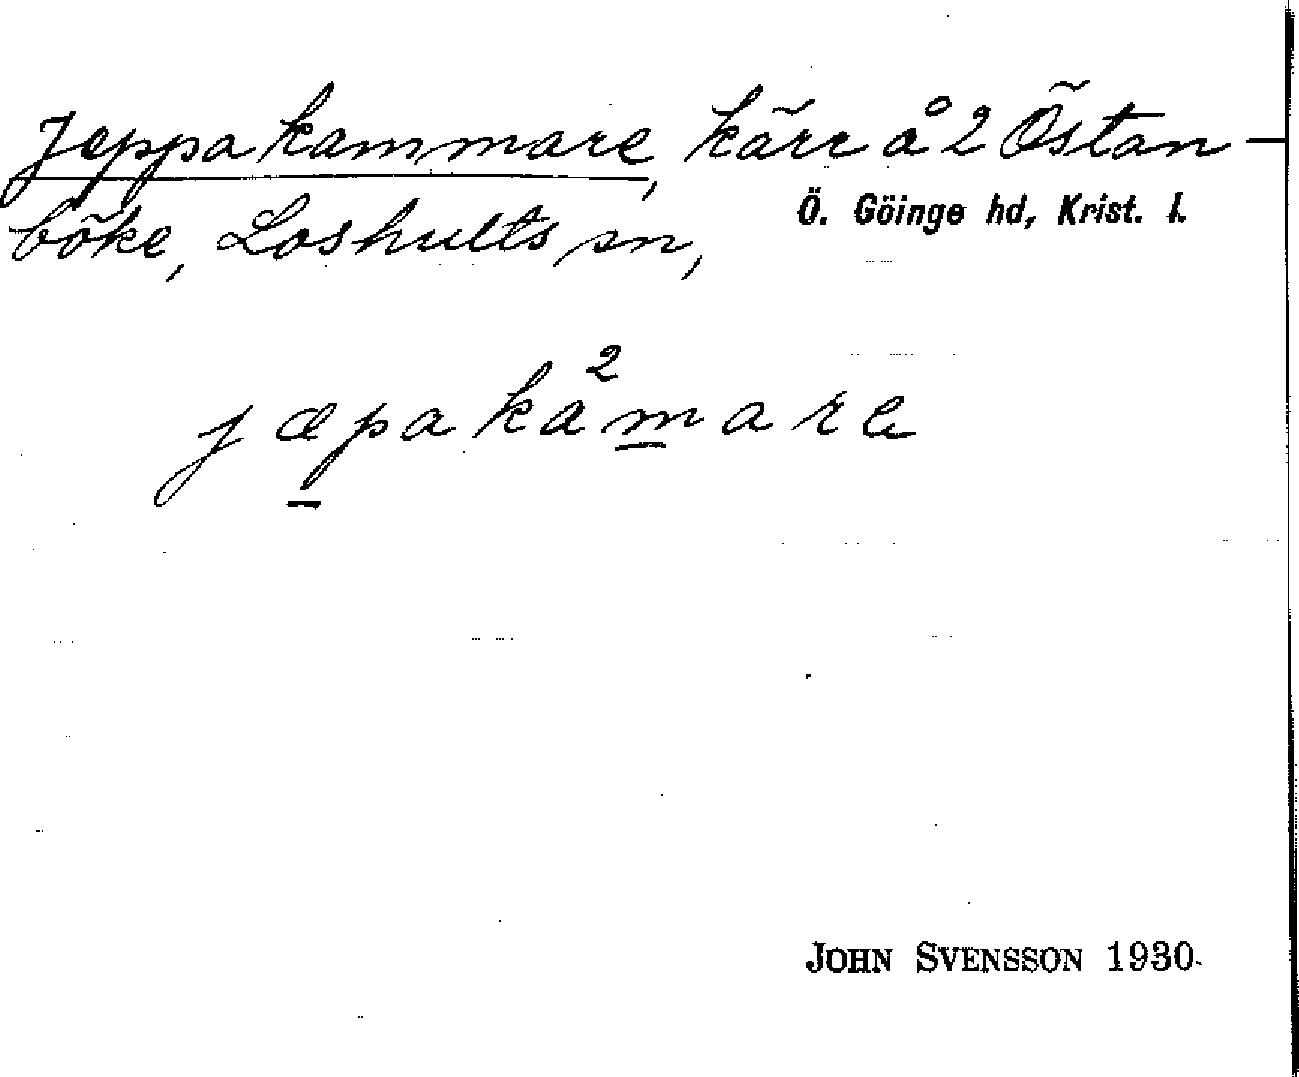 Jeppakammare, kärr å 2 Östan-
böke, Loshults sn, Ö. Göinge hd, Krist. l.
jæpakamare
2
JOHN SVENSSON 1930.